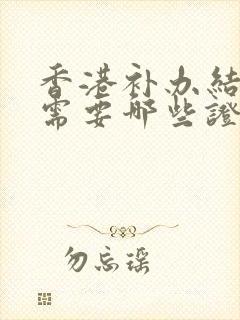 香港补办結
需要哪些證
勿忘瑶